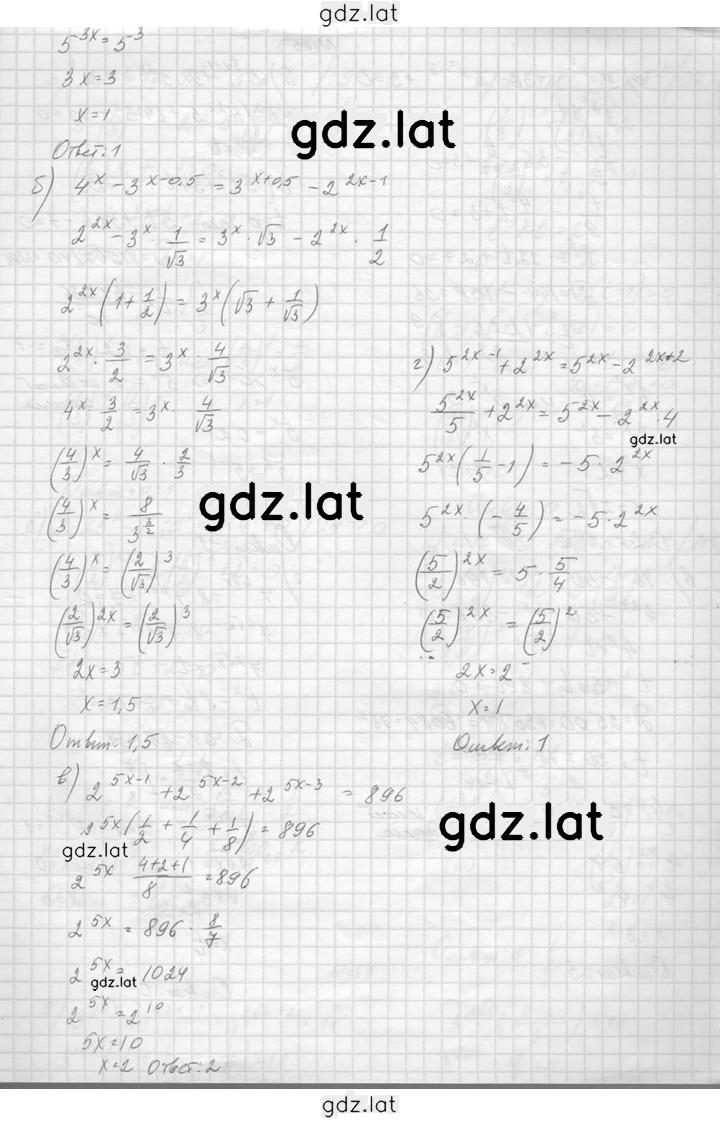 gdz.lat
5^{3x} = 5^{3}
3x = 3
x = 1
gdz.lat
Ответ: 1
б) 4^{x} - 3^{x-0,5} = 3^{x+0,5} - 2^{2x-1}
2^{2x} - 3^{x} · \frac{1}{√3} = 3^{x} · √3 - 2^{2x} · \frac{1}{2}
2^{2x}(1 + \frac{1}{2}) = 3^{x}(√3 + \frac{1}{√3})
2^{2x} · \frac{3}{2} = 3^{x} · \frac{4}{√3}
4^{x} · \frac{3}{2} = 3^{x} · \frac{4}{√3}
(\frac{4}{3})^{x} = \frac{4}{√3} · \frac{2}{3}
gdz.lat
(\frac{4}{3})^{x} = \frac{8}{3^{\frac{3}{2}}}
(\frac{4}{3})^{x} = (\frac{2}{√3})^{3}
(\frac{2}{√3})^{2x} = (\frac{2}{√3})^{3}
2x = 3
x = 1,5
Ответ: 1,5
в) 2^{5x-1} + 2^{5x-2} + 2^{5x-3} = 896
2^{5x}(\frac{1}{2} + \frac{1}{4} + \frac{1}{8}) = 896
gdz.lat
2^{5x} \frac{4+2+1}{8} = 896
2^{5x} = 896 · \frac{8}{7}
2^{5x} = 1024
gdz.lat
2^{5x} = 2^{10}
5x = 10
x = 2 Ответ: 2
г) 5^{2x-1} + 2^{2x} = 5^{2x} - 2^{2x+2}
\frac{5^{2x}}{5} + 2^{2x} = 5^{2x} - 2^{2x} · 4
gdz.lat
5^{2x}(\frac{1}{5} - 1) = -5 · 2^{2x}
5^{2x} · (-\frac{4}{5}) = -5 · 2^{2x}
(\frac{5}{2})^{2x} = 5 · \frac{5}{4}
(\frac{5}{2})^{2x} = (\frac{5}{2})^{2}
2x = 2
x = 1
Ответ: 1
gdz.lat
gdz.lat